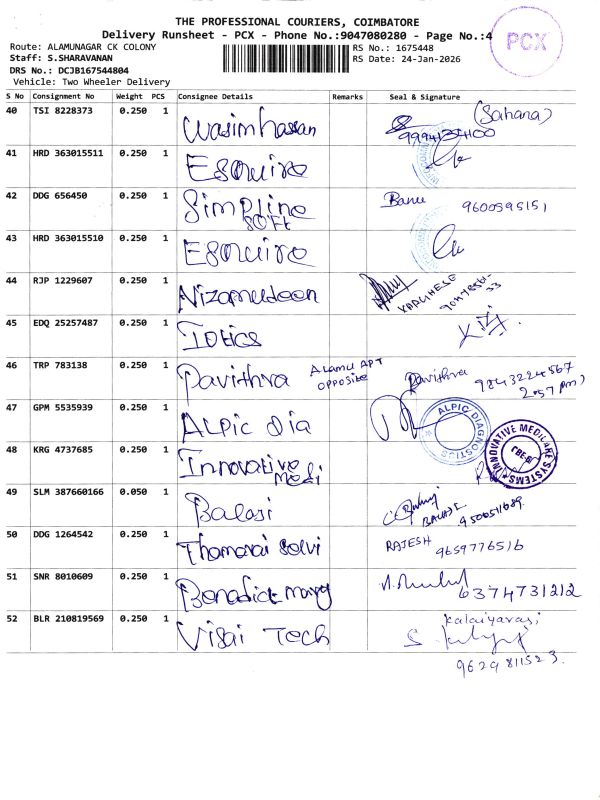 THE PROFESSIONAL COURIERS, COIMBATORE
Delivery Runsheet - PCX - Phone No.:9047080280 - Page No.:4
PCX
Route: ALAMUNAGAR CK COLONY
RS No.: 1675448
Staff: S.SHARAVANAN
RS Date: 24-Jan-2026
DRS No.: DCJB167544804
Vehicle: Two Wheeler Delivery
S No Consignment No Weight PCS Consignee Details Remarks Seal & Signature
40 TSI 8228373 0.250 1 Wasimhassan (Sahana)
41 HRD 363015511 0.250 1 Esquire
42 DDG 656450 0.250 1 Simpline Soft Banu 9600595151
43 HRD 363015510 0.250 1 Esquire
44 RJP 1229607 0.250 1 Nizamudeen VARGHESE
45 EDQ 25257487 0.250 1 Iotics
46 TRP 783138 0.250 1 Pavithra Alamu APT opposite Pavithra 9843224567
2.57 pm)
47 GPM 5535939 0.250 1 Alpic Dia ALPIC DIAGNOSTICS
48 KRG 4737685 0.250 1 Innovative Medi INNOVATIVE MEDICARE SYSTEMS CBE-
49 SLM 387660166 0.050 1 Balaji BALAJI
50 DDG 1264542 0.250 1 Thamarai Selvi RAJESH 9659776516
51 SNR 8010609 0.250 1 Benadict mary 6374731212
52 BLR 210819569 0.250 1 Visai Tech Kalaiyarasi
9629811523.